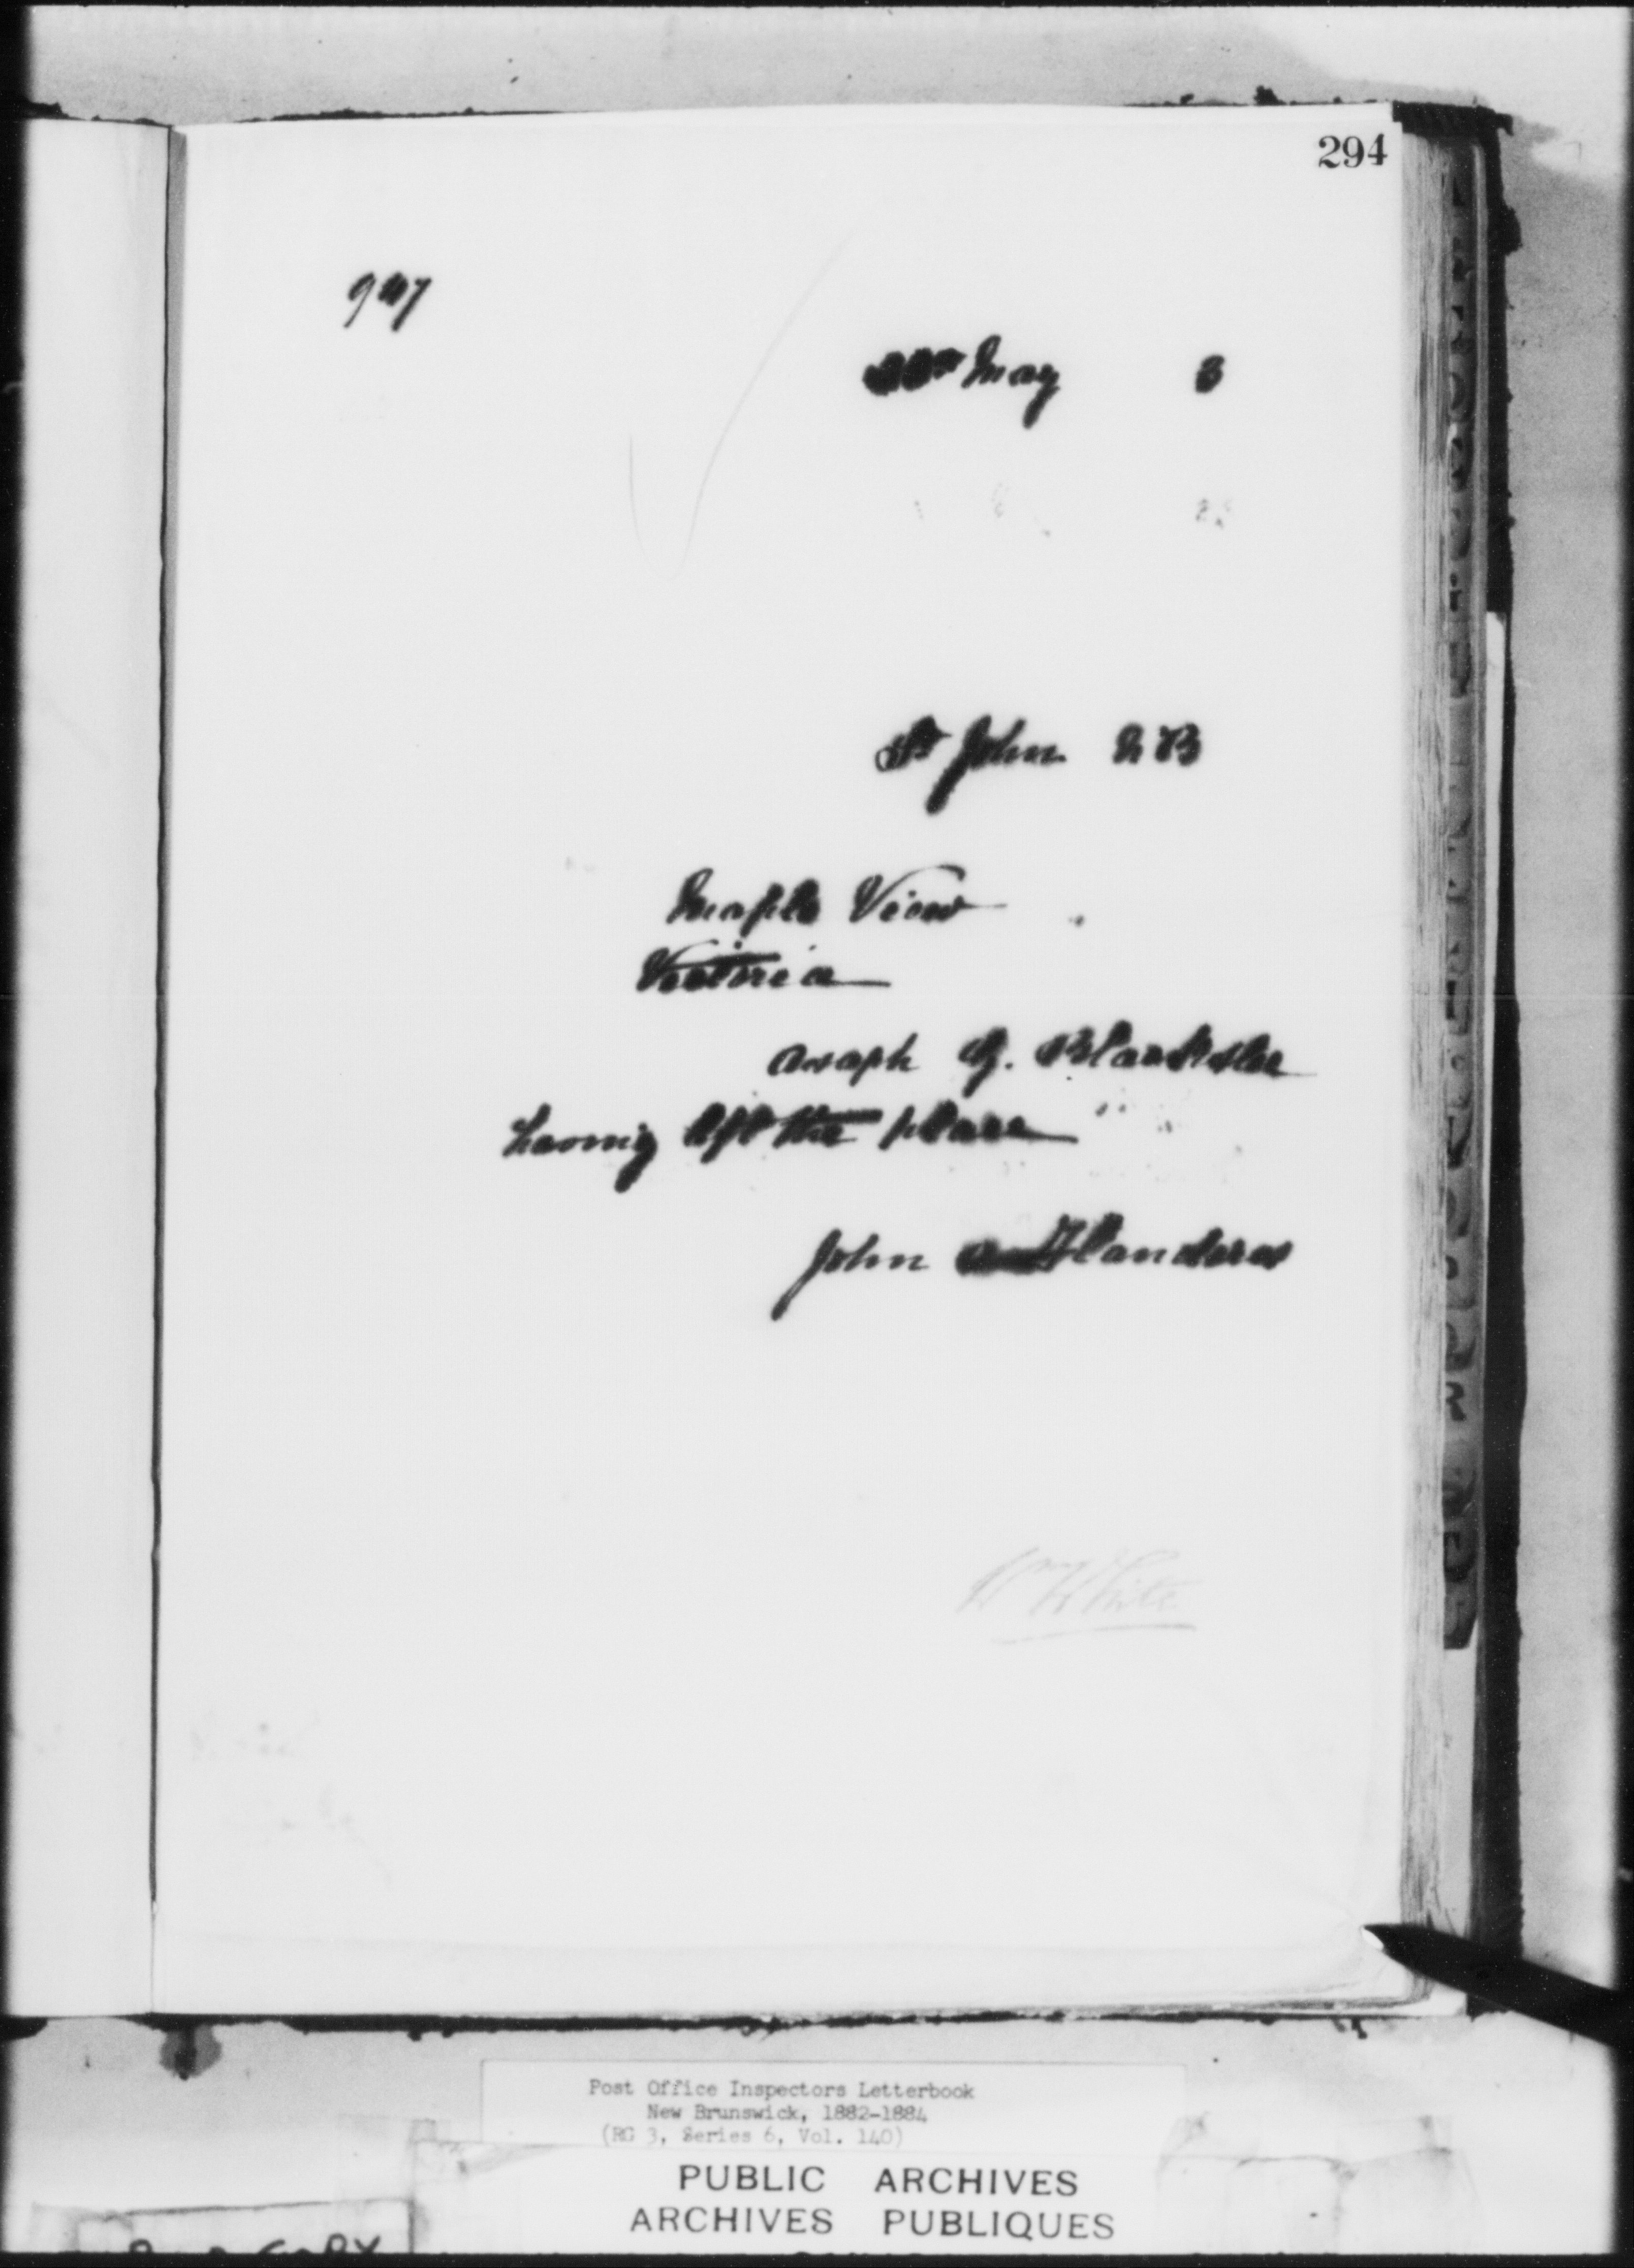 294
947
May 3
St John N B
Maple View
Victoria
Asaph G. Blackslee
having left the place
John Flanders
Wm White
Post Office Inspectors Letterbook
New Brunswick, 1882-1884
(RG 3, Series 6, Vol. 140)
PUBLIC ARCHIVES
ARCHIVES PUBLIQUES
COPY